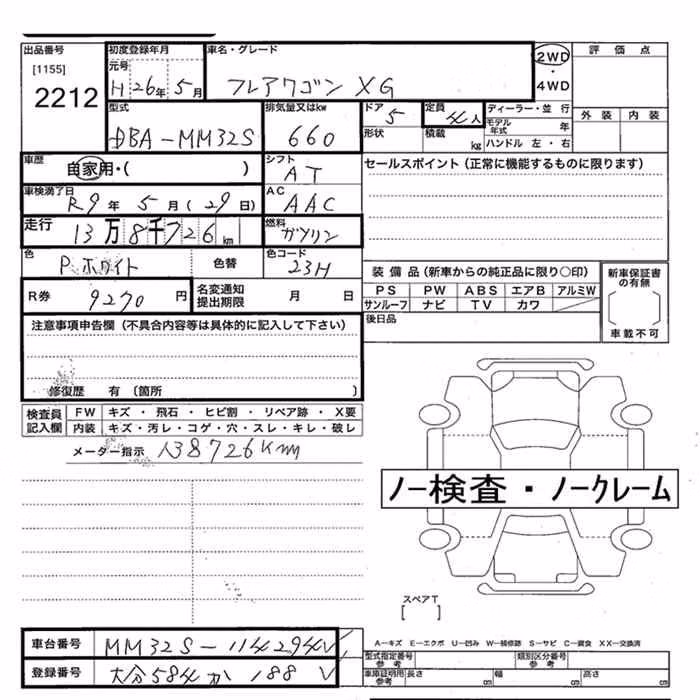 出品番号 初度登録年月 車名・グレード 2WD・4WD 評価点
[1155] 元号
2212 H 26年 5月 フレアワゴン XG
型式 排気量又はkw ドア 定員 ディーラー・並 行 外装 内装
DBA-MM32S 660 5 4人 モデル年式 年
形状 積載 kg ハンドル 左・右
車歴 シフト セールスポイント(正常に機能するものに限ります)
自家用・( ) AT
車検満了日 AC
R9年 5月(29日) AAC
走行 燃料
13万8千726km ガソリン
色 色替 色コード
Pホワイト 23H
装備品(新車からの純正品に限り○印) 新車保証書の有無
R券 9270円 名変通知提出期限 月 日
PS PW ABS エアB アルミW
サンルーフ ナビ TV カワ
後日品 車載不可
注意事項申告欄(不具合内容等は具体的に記入して下さい)
修復歴 有(箇所 )
検査員記入欄 FW キズ・飛石・ヒビ割・リペア跡・X要
内装 キズ・汚レ・コゲ・穴・スレ・キレ・破レ
メーター指示 138726Km
ノー検査・ノークレーム
スペアT
[ ]
A-キズ E-エクボ U-凹み W-補修跡 S-サビ C-腐食 XX-交換済
車台番号 MM32S-114294
型式指定番号 参考 類別区分番号 参考
登録番号 大分584か188
車庫証明用 参考 長さ cm 幅 cm 高さ cm